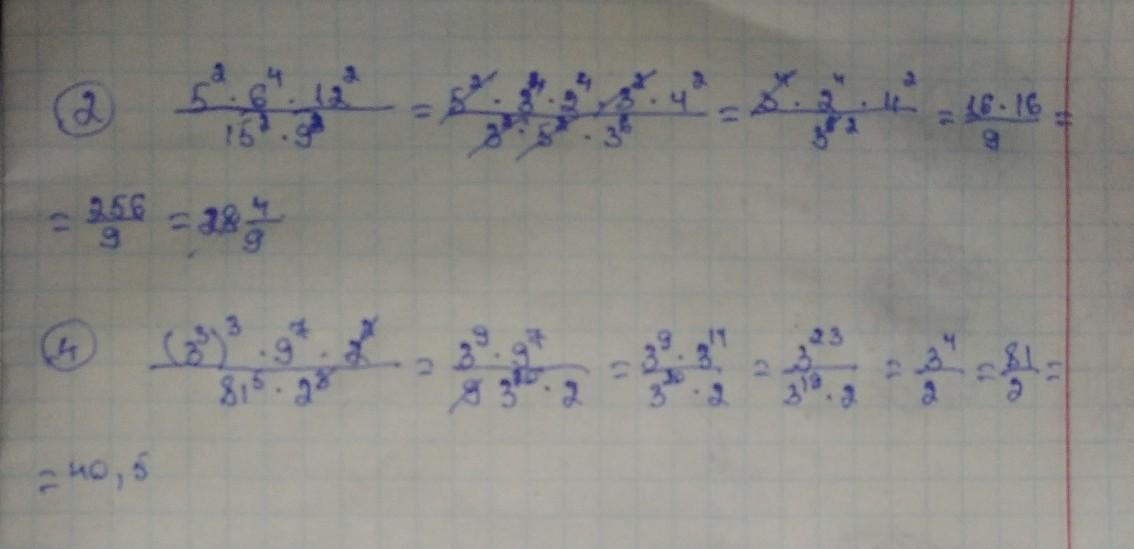 ② (5² · 6⁴ · 12²)/(15² · 9³) = (5² · 3⁴ · 2⁴ · 3² · 4²)/(3² · 5² · 3⁶) = (3⁴ · 2⁴ · 4²)/(3⁶ ²) = (16 · 16)/9 =
= 256/9 = 28 4/9
④ ((3³)³ · 9⁷ · 2²)/(81⁵ · 2³) = (3⁹ · 9⁷)/(3²⁰ · 2) = (3⁹ · 3¹⁴)/(3²⁰ · 2) = 3²³/(3¹⁹ · 2) = 3⁴/2 = 81/2 =
= 40,5